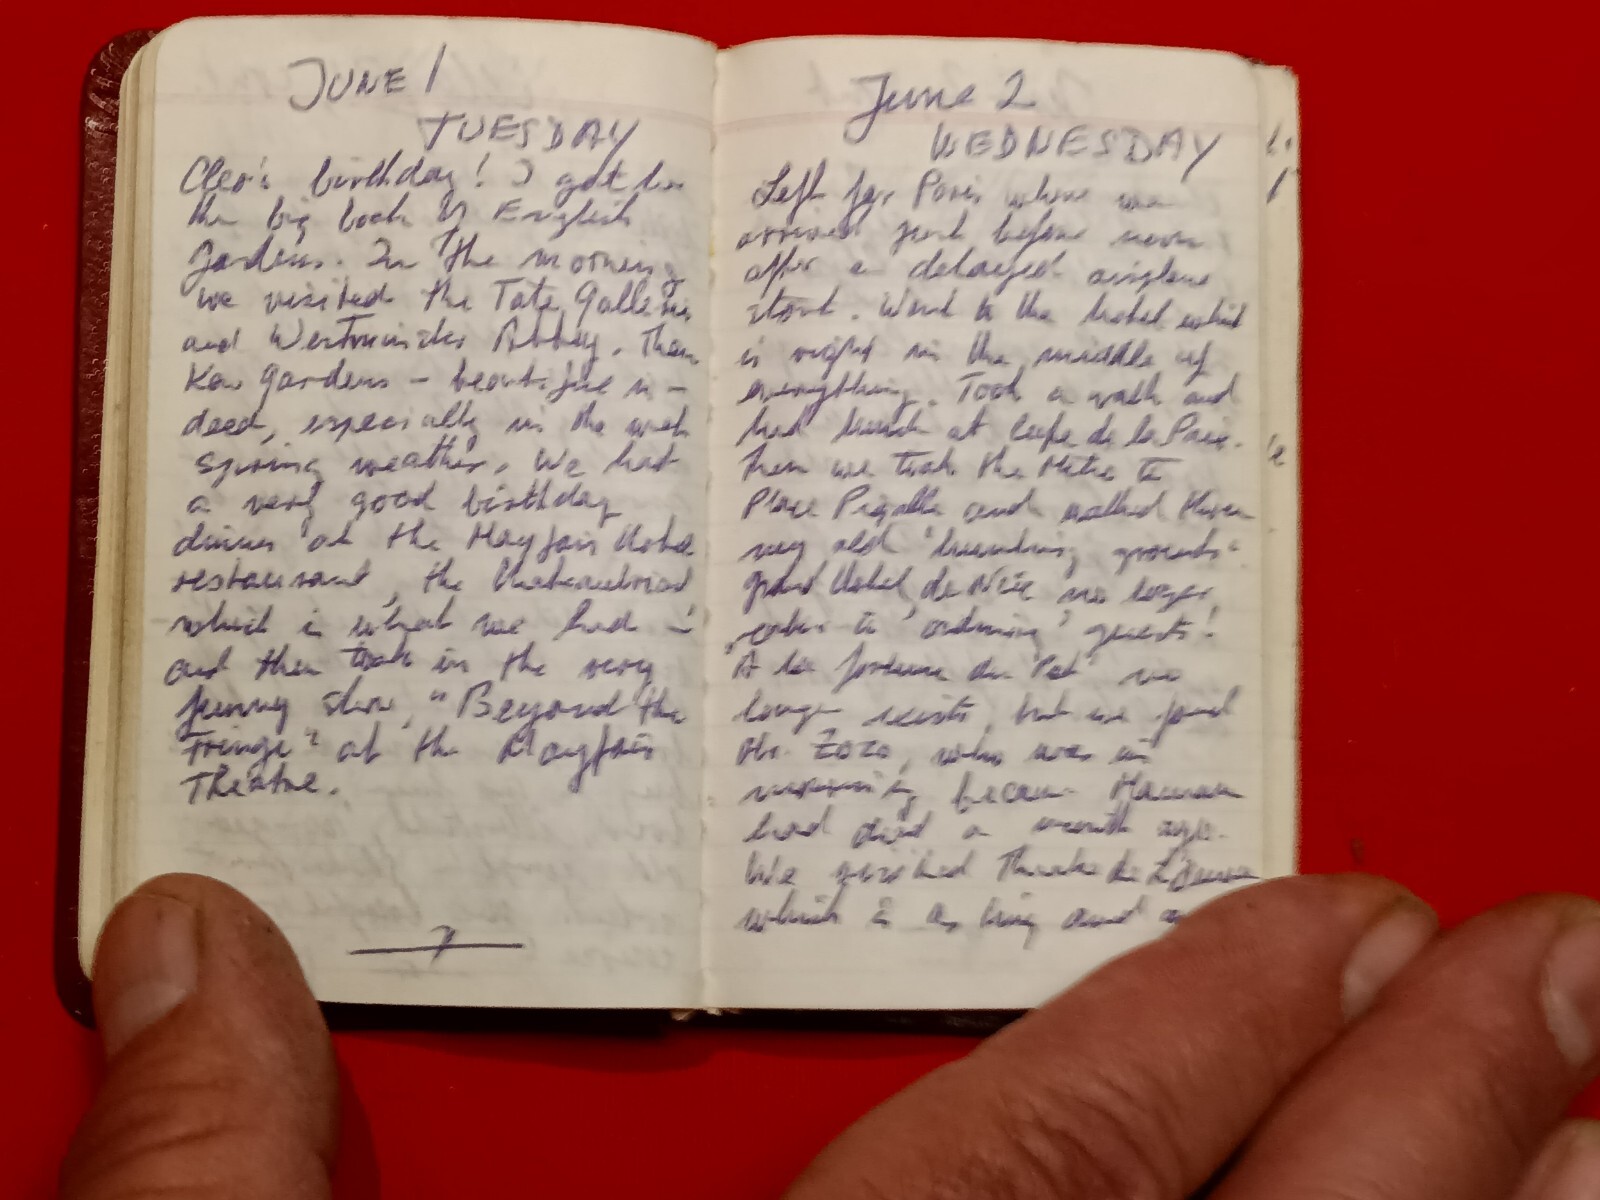 JUNE 1
TUESDAY
Cleo's birthday! I got her
the big book of English
gardens. In the morning
we visited the Tate Galleries
and Westminster Abbey. Then
Kew gardens – beautiful in-
deed, especially in the
spring weather. We had
a very good birthday
dinner at the Mayfair Hotel
restaurant, the Chateaubriand
which is what we had –
and then took in the very
funny show, "Beyond the
Fringe" at the Mayfair
Theatre.
June 2
WEDNESDAY
Left for Paris where we
arrived just before noon
after a delayed airplane
start. Went to the hotel which
is right in the middle of
everything. Took a walk and
had lunch at Cafe de la Paix.
Then we took the Metro to
Place Pigalle and walked
my old "hunting grounds"
Grand Hotel de Nice no longer
to 'ordinary' guests!
A la fortune du Pot no
longer exists, but we
Mr. ZoZo, who was in
mourning because Maman
had died a month ago.
We visited Theatre de
which is as big and